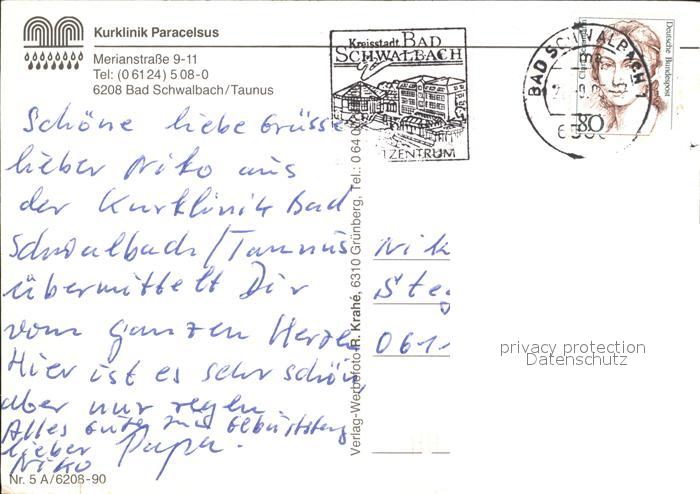 Kurklinik Paracelsus
Merianstraße 9-11
Tel: (0 61 24) 5 08-0
6208 Bad Schwalbach/Taunus
Kreisstadt BAD
SCHWALBACH
ZENTRUM
BAD SCHWALBACH 1
Deutsche Bundespost
80
Schöne liebe Grüsse
lieber Niko aus
der Kurklinik Bad
Schwalbach/Taunus
übermittelt Dir
vom ganzen Herzen
Hier ist es sehr schön
aber nur regen
Alles Gute zum Geburtstag
lieber Papa.
Niko
Nr. 5 A/6208-90
Verlag-Werbefoto R. Krahé, 6310 Grünberg, Tel.: 0 64 0
Nik
Steg
061
privacy protection
Datenschutz